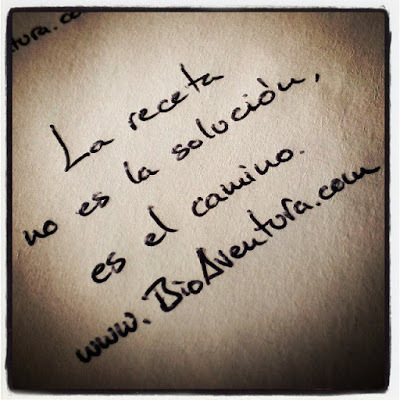 tura.co
La receta
no es la solución,
es el camino.
www.BioAventura.com